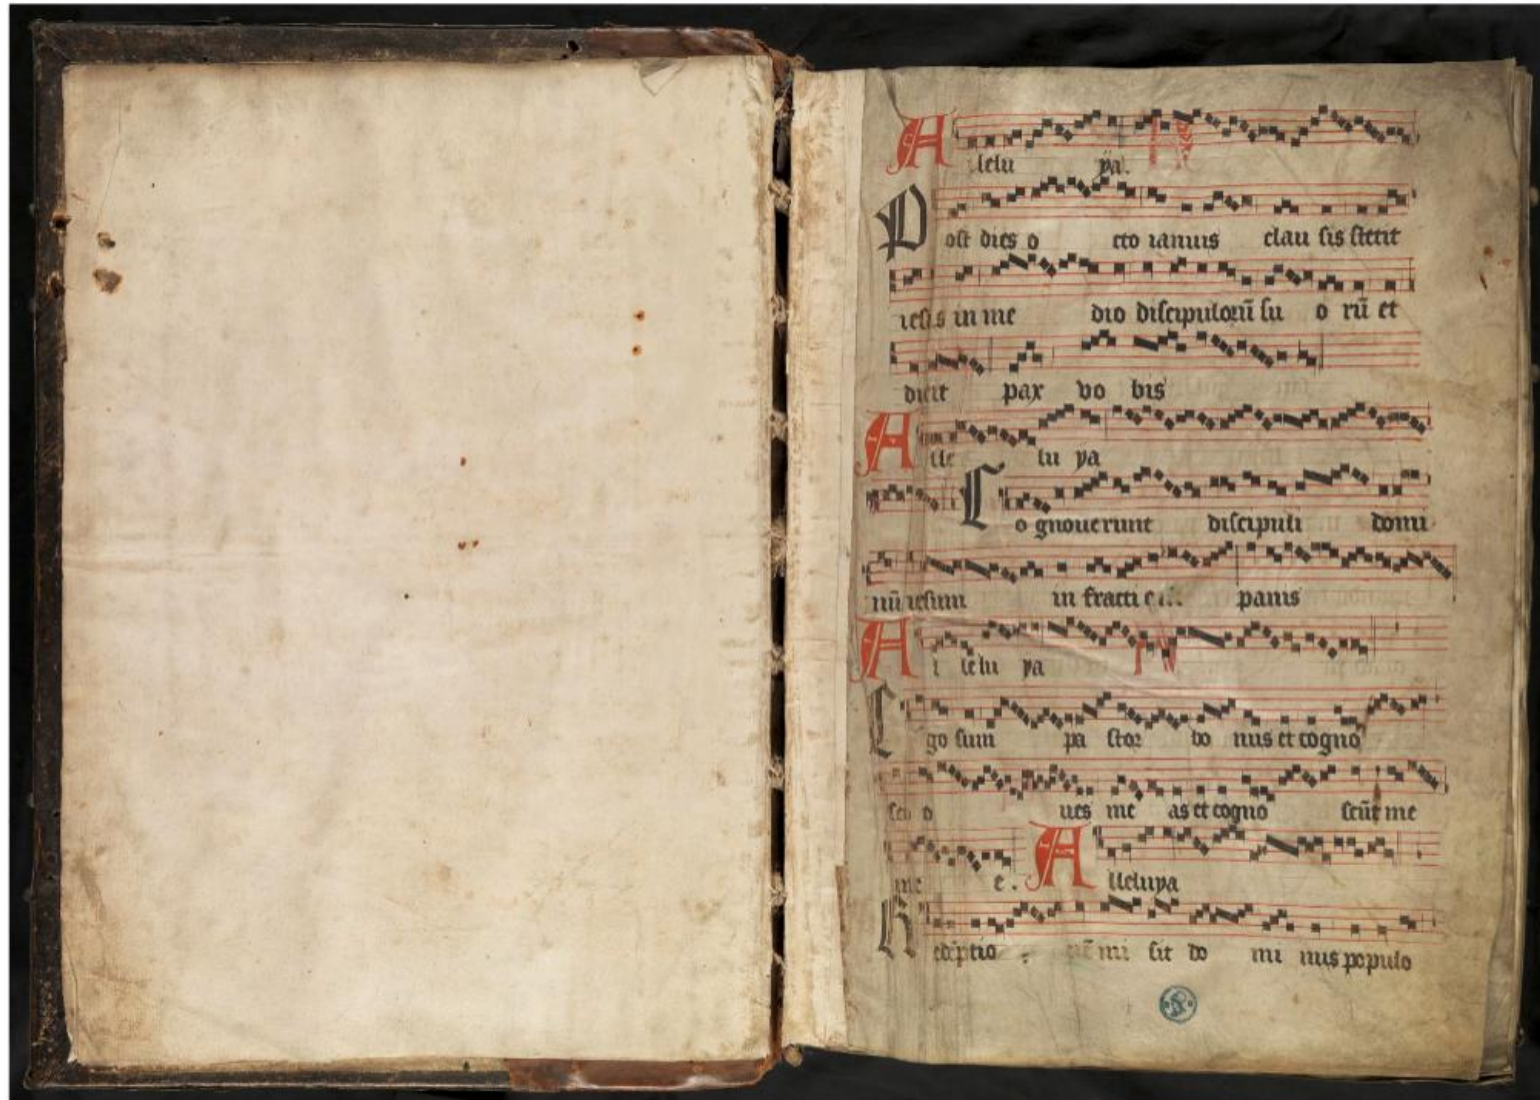 Alleluÿa.
Post dies o cto ianuis clau sis stetit
iesus in me dio discipuloru̅ su o ru̅ et
dicit pax vo bis
Alle lu ÿa
Co gnouerunt discipuli domi
nu̅ iesum in fracti panis
A l lelu ya
Ego sum pa stor bo nus et cogno
sco o ues me as et cogno scu̅t me
me e. Alleluya
Rede̅ptio ne̅ mi sit do mi nus populo